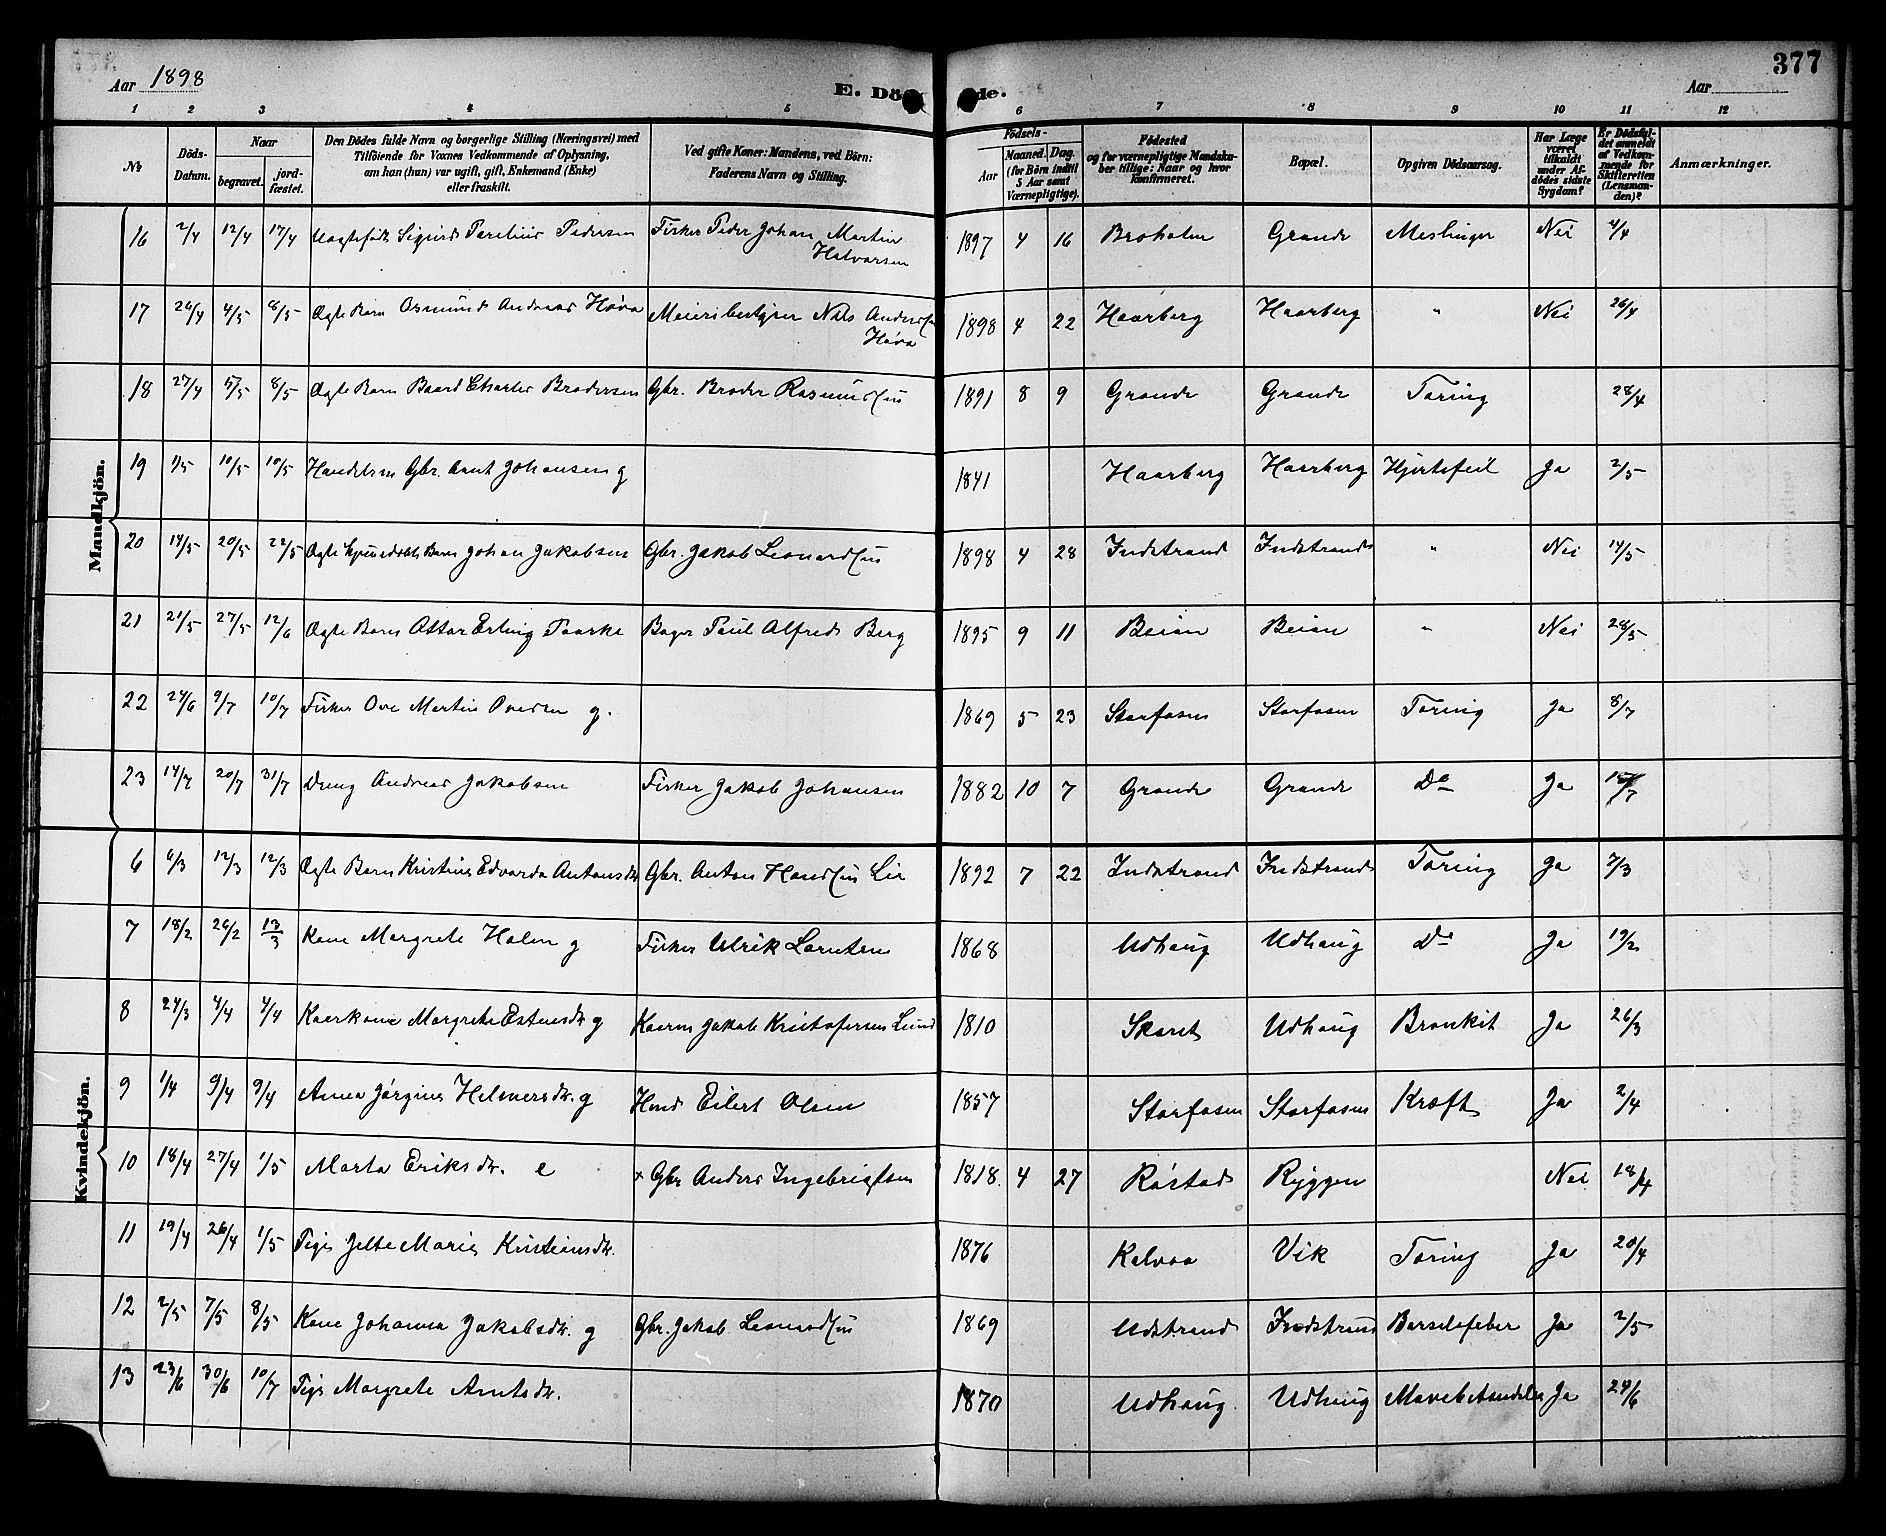 Aar 1898
E. Döde.
Aar
377
1 2 3 4 5 6 7 8 9 10 11 12
No
Döds-Datum.
Naar
begravet.
jord-fæstet.
Den Dödes fulde Navn og borgerlige Stilling (Næringsvei) med
Tilföiende for Voxnes Vedkommende af Oplysning,
om han (hun) var ugift, gift, Enkemand (Enke)
eller fraskilt.
Ved gifte Koner: Mandens, ved Börn:
Faderens Navn og Stilling.
Födsels-
Aar
Maaned. Dag.
(for Börn indtil
5 Aar samt
Værnepligtige).
Födested
og for værnepligtige Mandska-
ber tillige: Naar og hvor
konfirmeret.
Bopæl.
Opgiven Dödsaarsag.
Har Læge
været
tilkaldt
under Af-
dödes sidste
Sygdom?
Er Dödsfal-
det anmeldt
af Vedkom-
mende for
Skifteretten
(Lensman-
den)?
Anmærkninger.
Mandkjön.
16 2/4 12/4 17/4 Uægtefødt Sigurd Pareliius Pedersen Fisker Peder Johan Martin Halvorsen 1897 4 16 Broholm Grande Meslinger Nei 4/4
17 26/4 4/5 8/5 Ægte Barn Osmund Andreas Høva Meieribestyrer Nils Anderssen Høva 1898 4 22 Haarberg Haarberg " Nei 26/4
18 27/4 5/5 8/5 Ægte Barn Baard Charles Brodersen Gbr. Broder Rasmussen 1891 8 9 Grande Grande Tæring 28/4
19 1/5 10/5 10/5 Handelsm Gbr. Arnt Johansen g 1841 Haarberg Haarberg Hjertefeil Ja 2/5
20 14/5 20/5 22/5 Ægte hjemedøbt Barn Johan Jakobsen Gbr. Jakob Leonardsen 1898 4 28 Indstrand Indstrand " Nei 14/5
21 21/5 27/5 12/6 Ægte Barn Ottar Erling Paaske Bager Paul Alfred Berg 1895 9 11 Beian Beian " Nei 28/5
22 24/6 9/7 10/7 Fisker Ove Martin Ovesen g. 1869 5 23 Storfosen Storfosen Tæring Ja 8/7
23 14/7 20/7 31/7 Dreng Andreas Jakobsen Fisker Jakob Johansen 1882 10 7 Grande Grande Do Ja 15/7
Kvindekjön.
6 6/3 12/3 12/3 Ægte Barn Kristine Edvarda Antonsdr. Gbr. Anton Hanssen Lie 1892 7 22 Indstrand Indstrand Tæring Ja 7/3
7 18/2 26/2 13/3 Kone Margrete Holm g Fisker Ulrik Lorntsen 1868 Udhaug Udhaug Do Ja 19/2
8 24/3 4/4 4/4 Kaarkone Margrete Estensdr. g Kaarm Jakob Kristofersen Lund 1810 Skaret Udhaug Bronkit Ja 26/3
9 1/4 9/4 9/4 Anna Jørgine Helmersdr. g Hmd Eilert Olsen 1857 Storfosen Storfosen Kræft Ja 2/4
10 18/4 27/4 1/5 Marta Eriksdr. e + Gbr Anders Ingebrigtsen 1818. 4 27 Røstad Ryggen Nei 18/4
11 19/4 26/4 1/5 Pige Jette Marie Kristiansdr. 1876 Kalvaa Vik Tæring Ja 20/4
12 2/5 7/5 8/5 Kone Johanna Jakobsdr. g Gbr. Jakob Leonardsen 1869 Udstrand Indstrand Barselsfeber Ja 2/5
13 23/6 30/6 10/7 Pige Margrete Arntsdr. 1870 Udhaug Udhaug Mavebetændelse Ja 24/6